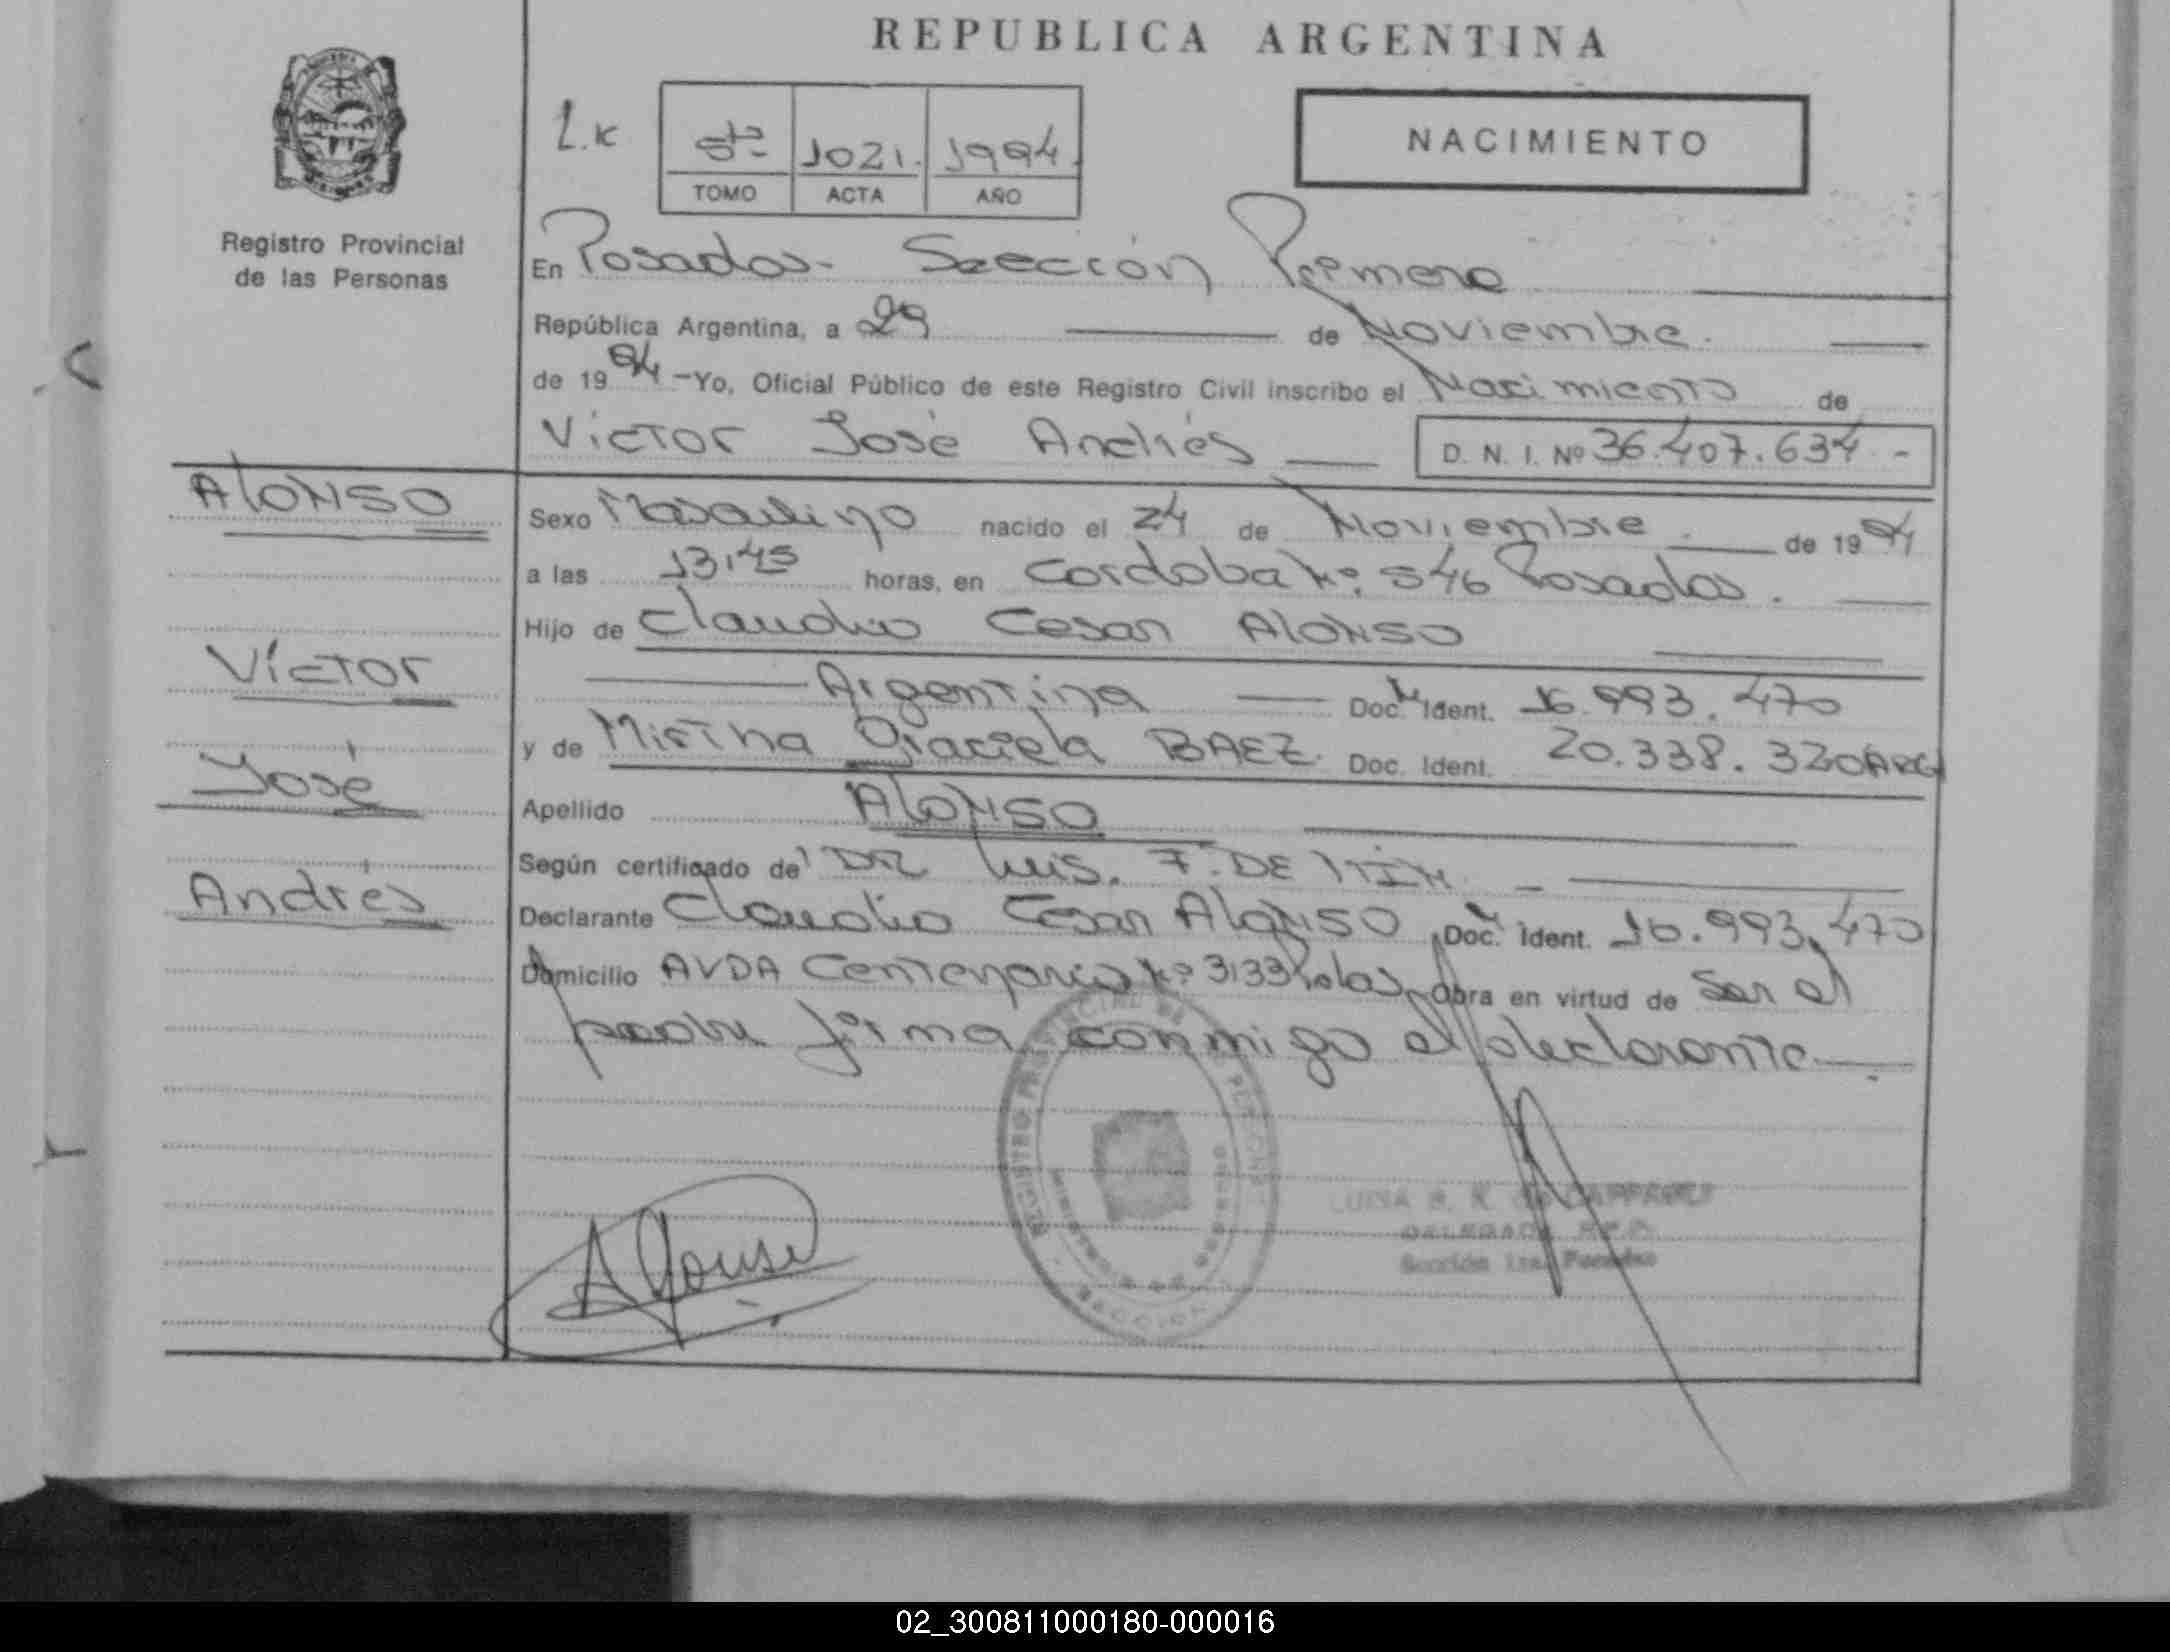 REPUBLICA ARGENTINA
L.K
5to- 1021. 1994.
TOMO ACTA AÑO
NACIMIENTO
Registro Provincial
de las Personas
En Posadas- Sección Primera
República Argentina, a 29 de Noviembre.
de 1994 -Yo, Oficial Público de este Registro Civil inscribo el Nacimiento de
Victor José Andrés D. N. I. Nº 36.407.634.-
Alonso
Víctor
José
Andrés
Sexo Masculino nacido el 24 de Noviembre. de 1994
a las 13:45 horas, en Cordoba Nº. 546 Posadas.
Hijo de Claudio Cesar Alonso
Argentina Doc. Ident. 16.993.470
y de Mirtha Graciela BAEZ. Doc. Ident. 20.338.320 ARG
Apellido Alonso
Según certificado de DR Luis. F. DE
Declarante Claudio Cesar Alonso Doc. Ident. 16.993.470
Domicilio AVDA Centenario Nº 3133 Pdas, obra en virtud de ser el
padre firma conmigo el declarante.
Alonso
REGISTRO PROVINCIAL DE LAS PERSONAS
MINISTERIO DE GOBIERNO
SECCION
LUISA
DELEGADA R.P.P.
Sección 1ra. Posadas
02_300811000180-000016